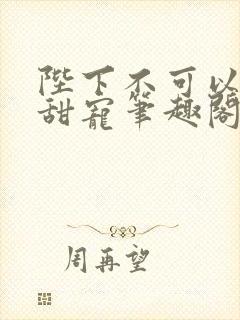 陛下不可以
甜寵筆趣閣
周再望